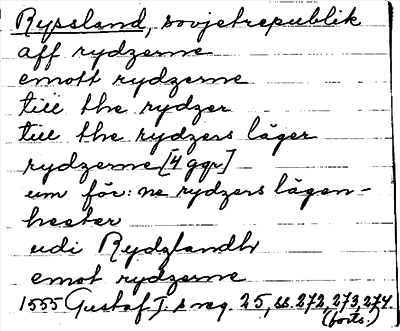 Ryssland, sovjetrepublik
aff rydzerne
emott rydzerne
till the rydzer
till the rydzers läger
rydzerne [4 ggr]
um för:ne rydzers lägen-
heeter
udi Rydzlandh
emot rydzerne
1555 Gustaf I:s reg. 25, ss. 272, 273, 274.
(forts.)